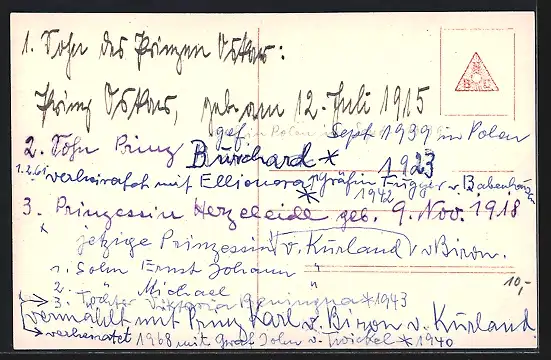 1. Sohn des Prinzen Oskar:
Prinz Oskar, geb. am 12. Juli 1915
gef. in Polen Sept 1939 in Polen
2. Sohn Prinz Burchard * 1923
1.2.61 verheiratet mit Ellionora Gräfin Fugger v. Babenhausen
* 1942
3. Prinzessin Herzeleide geb. 9. Nov. 1918
x jetzige Prinzessin v. Kurland v Biron.
1. Sohn Ernst Johann "
2. " Michael "
→ 3. Tochter Viktoria Benigna * 1943
vermählt mit Prinz Karl v. Biron v. Kurland
→ verheiratet 1968 mit Graf John v. Twickel * 1940
10,-